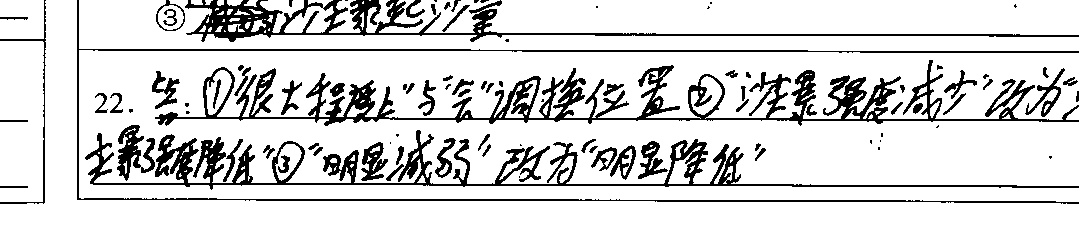 ③ 沙尘暴起沙量.
22. 答:①“很大程度上”与“会”调换位置 ②“沙尘暴强度减少”改为“
尘暴强度降低”③“明显减弱”改为“明显降低”